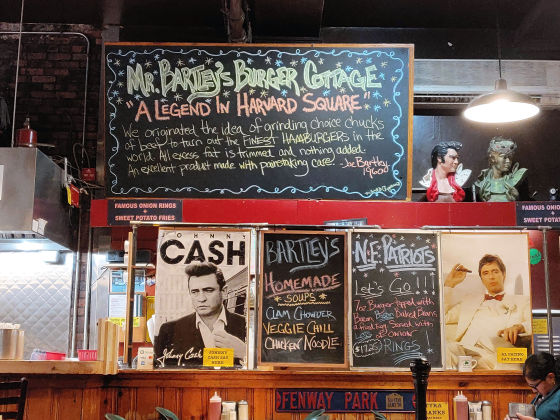 Mr. Bartley's Burger Cottage
"A Legend In Harvard Square"
We originated the idea of grinding choice chucks
of beef to turn out the FINEST HAMBURGERS in the
world. All excess fat is trimmed and nothing added.
An excellent product made with painstaking care!
-Joe Bartley
1960
FAMOUS ONION RINGS
+
SWEET POTATO FRIES
FAMOUS ONION
SWEET POTATO
JOHNNY
CASH
Johnny Cash
BARTLEY'S
HOMEMADE
SOUPS
CLAM CHOWDER
VEGGIE CHILI
CHICKEN NOODLE
N.E. PATRIOTS
Let's Go!!!
7oz Burger topped with
Bacon Baked Beans
a fried egg served with
RINGS
FENWAY PARK